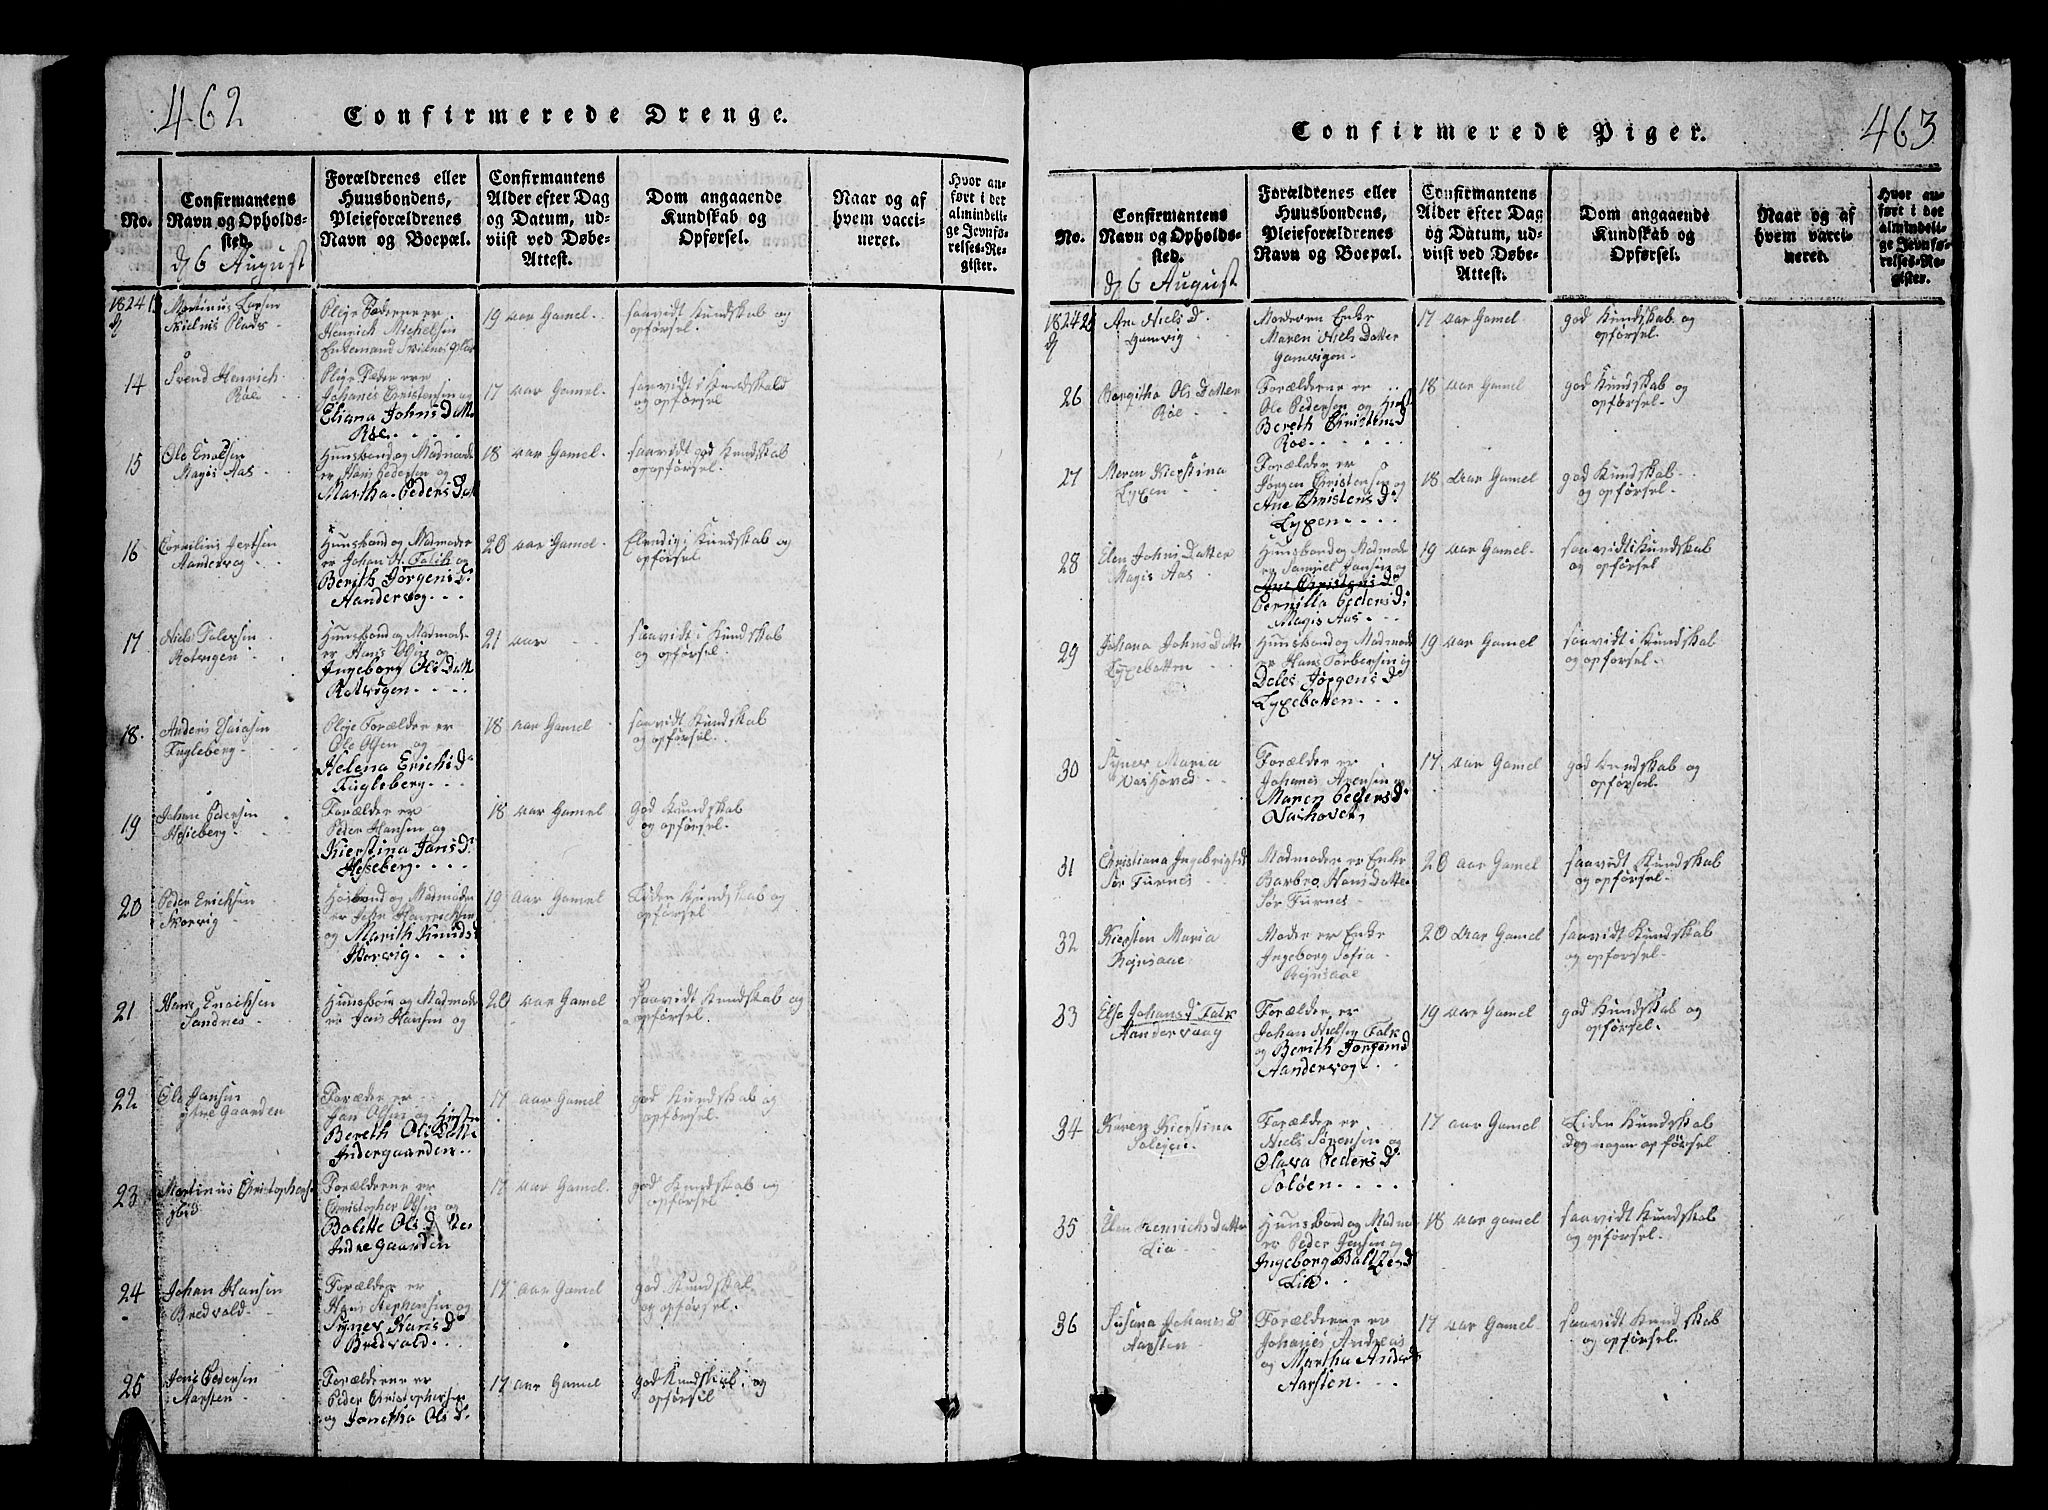 462
Confirmerede Drenge.
No.
Confirmantens
Navn og Opholds-
sted.
Forældrenes eller
Huusbondens,
Pleieforældrenes
Navn og Boepæl.
Confirmantens
Alder efter Dag
og Datum, ud-
viist ved Døbe-
Attest.
Dom angaaende
Kundskab og
Opførsel.
Naar og af
hvem vacci-
neret.
Hvor an-
ført i det
almindeli-
ge Jevnfø-
relses-Re-
gister.
d 6 August
1824 13
Martinus Larsen
Skielnis Plads
Pleje Fæderne er
Henrich Michelsen
Enkemand
19 aar Gamel
saavidt Kundskab og
opførsel
14
Svend Henrich
Roe
Pleje Fæder ere
Johanes Christensen og
Eliana Johns Datt
Roe
17 aar Gamel
saavidt i Kundskab
og opførsel
15
Ole
Magis Aas
Huusbond og Madmode
er Hans Pedersen og
Martha Peders Dat
18 aar Gamel
saavidt god Kundskab
og opførsel
16
Cornilius
Aandervog
Huusbond og Madmoder
er Johan N. Falch og
Berith Jørgens D
Aandervog
20 aar Gamel
Elendig i Kundskab og
opførsel
17
Niels
Rotvigen
Huusbond og Madmode
er Hans og
Ingeborg Ols Datt
Rotvigen
21 aar
saavidt i Kundskab
og opførsel
18
Anders
Fugleberg
Pleje Forælder er
Ole Olsen og
Helena Erichs D
Fugleberg
18 aar Gamel
saavidt Kundskab
og opførsel
19
Johan Pedersen
Hesseberg
Forælder er
Peder Hansen og
Kierstina Jans D
Hesseberg
18 aar Gamel
God Kundskab
og opførsel
20
Peder Erichsen
Skorvig
Husbond og Madmoder
er
og Marith Knuds d
Skorvig
19 aar Gamel
Liden Kundskab og
opførsel
21
Hans
Sandnes
Huusbond og Madmode
er Jens Hansen og
20 aar Gamel
saavidt Kundskab og
opførsel
22
Ole Jansen
Gaarden
Forælder er
Jan Olsen og
Bereth Ols Datt
Indergaarden
17 aar Gamel
god Kundskab og
opførsel
23
Martinus Christophers
Forælderne er
Christopher Olsen og
Bolette Ols Datter
Indre Gaarden
17 aar Gamel
god Kundskab og
opførsel
24
Johan Hansen
Bredvold
Forælder er
Hans Stephansen og
Synev Hans D
Bredvald
17 aar Gamel
god Kundskab
og opførsel
25
Jens Pedersen
Aarsten
Forælderne er
Peder Christophersen
og Janetha Ols D
17 aar Gamel
god Kundskab og
opførsel
463
Confirmerede Piger.
No.
Confirmantens
Navn og Opholds-
sted.
Forældrenes eller
Huusbondens,
Pleieforældrenes
Navn og Boepæl.
Confirmantens
Alder efter Dag
og Datum, ud-
viist ved Døbe-
Attest.
Dom angaaende
Kundskab og
Opførsel.
Naar og af
hvem vacci-
neret.
Hvor an-
ført i det
almindeli-
ge Jevnfø-
relses-Re-
gister.
d 6 August
1824 25
Ane Niels D
Gamvig
Moderen Enke
Maren Niels Datter
Gamvigen
17 aar Gamel
god Kundskab og
opførsel
26
Margitha Ols Datter
Roe
Forælderne er
Ole Pedersen og
Bereth Christens D
Roe
18 aar Gamel
god Kundskab og
opførsel
27
Maren Kierstina
Lyxen
Forælder er
Jørgen Christensen og
Ane Christens D
Lyxen
18 aar Gamel
god Kundskab
og opførsel
28
Elen Johns Datter
Magis Aas
Huusbond og Madmode
er Samuel Jansen og
Ane Christens D
Pernilla Peders D
Magis Aas
19 aar Gamel
saavidt i Kundskab
og opførsel
29
Johana Johns Datte
Lyxebotten
Huusbond og Madmod
er Hans Torbersen og
Deles Jørgens D
Lyxebotten
19 aar Gamel
saavidt i Kundskab
og opførsel
30
Synev Maria
Vashoved
Forælder er
Johanes Arensen og
Maren Peders D
Vashovet
17 aar Gamel
god Kundskab og
opførsel
31
Christiana Ingebrigts d
Sør Furnes
Madmoder er Enke
Barbro Hans Datter
Sør Furnes
20 aar Gamel
saavidt Kundskab
og opførsel
32
Kiersten Maria
Rejnsaae
Moder er Enke
Ingeborg Sofia
Rejnsaae
20 aar Gamel
saavidt Kundskab
og opførsel
33
Else Johans D Falk
Aandervaag
Forælder er
Johan Nielsen Falk
og Berith Jørgens d
Aandervog
19 aar Gamel
god Kundskab og
opførsel
34
Karen Kierstina
Soløjen
Forælder er
Niels Sørensen og
Olava Peders D
Soløen
17 aar Gamel
Liden Kundskab
dog nogen opførsel
35
Elen Henrichs Datter
Lia
Huusbond og Madmo
er Peder Jensen og
Ingeborg Baltzers d
Lia
18 aar gamel
saavidt Kundskab
og opførsel
36
Susana Johanes d
Aarsten
Forælderne er
Johanes Andreas
og Martha Anders
Aarsten
17 aar Gamel
saavidt Kundskab
og opførsel